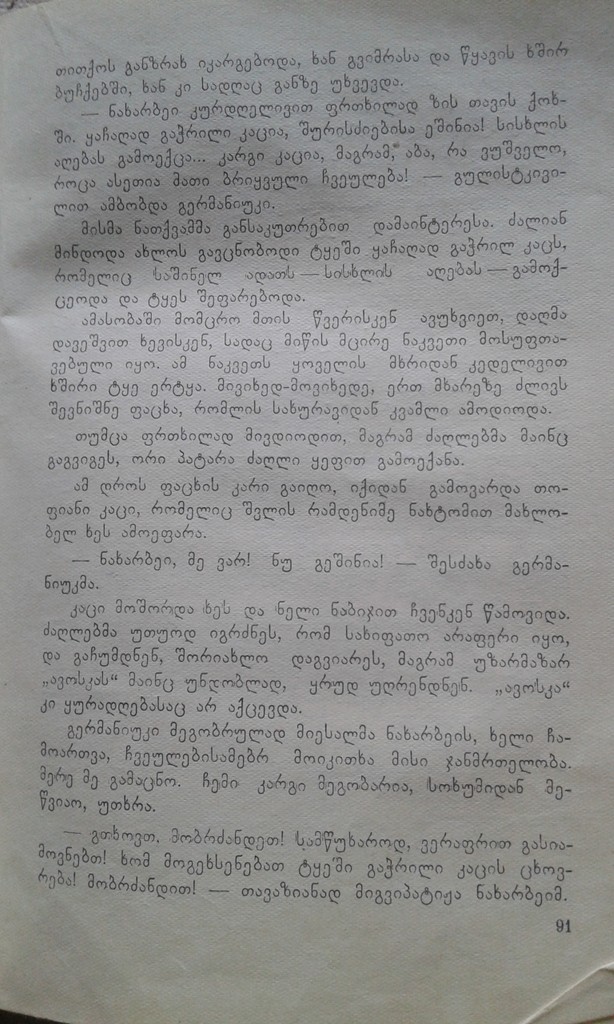 თითქოს განზრახ იკარგებოდა, ხან გვიმრასა და წყავის ხშირ
ბუჩქებში, ხან კი სადღაც განზე უხვევდა.
— ნახარბეი კურდღელივით ფრთხილად ზის თავის ქოხ-
ში. ყაჩაღად გაჭრილი კაცია, შურისძიებისა ეშინია! სისხლის
აღებას გამოექცა... კარგი კაცია, მაგრამ, აბა, რა ვუშველო,
როცა ასეთია მათი ბრიყვული ჩვეულება! — გულისტკივი-
ლით ამბობდა გერმანიუკი.
მისმა ნათქვამმა განსაკუთრებით დამაინტერესა. ძალიან
მინდოდა ახლოს გავცნობოდი ტყეში ყაჩაღად გაჭრილ კაცს,
რომელიც საშინელ ადათს — სისხლის აღებას — გამოქ-
ცეოდა და ტყეს შეფარებოდა.
ამასობაში მომცრო მთის წვერისკენ ავუხვიეთ, დაღმა
დავეშვით ხევისკენ, სადაც მიწის მცირე ნაკვეთი მოსუფთა-
ვებული იყო. ამ ნაკვეთს ყოველის მხრიდან კედელივით
ხშირი ტყე ერტყა. მივიხედ-მოვიხედე, ერთ მხარეზე ძლივს
შევნიშნე ფაცხა, რომლის სახურავიდან კვამლი ამოდიოდა.
თუმცა ფრთხილად მივდიოდით, მაგრამ ძაღლებმა მაინც
გაგვიგეს, ორი პატარა ძაღლი ყეფით გამოექანა.
ამ დროს ფაცხის კარი გაიღო, იქიდან გამოვარდა თო-
ფიანი კაცი, რომელიც შვლის რამდენიმე ნახტომით მახლო-
ბელ ხეს ამოეფარა.
— ნახარბეი, მე ვარ! ნუ გეშინია! — შესძახა გერმა-
ნიუკმა.
კაცი მოშორდა ხეს და ნელი ნაბიჯით ჩვენკენ წამოვიდა.
ძაღლებმა უთუოდ იგრძნეს, რომ სახიფათო არაფერი იყო,
და გაჩუმდნენ, შორიახლო დაგვიარეს, მაგრამ უზარმაზარ
„ავოსკას“ მაინც უნდობლად, ყრუდ უღრენდნენ. „ავოსკა“
კი ყურადღებასაც არ აქცევდა.
გერმანიუკი მეგობრულად მიესალმა ნახარბეის, ხელი ჩა-
მოართვა, ჩვეულებისამებრ მოიკითხა მისი ჯანმრთელობა.
მერე მე გამაცნო. ჩემი კარგი მეგობარია, სოხუმიდან მე-
წვიაო, უთხრა.
— გთხოვთ, მობრძანდეთ! სამწუხაროდ, ვერაფრით გასია-
მოვნებთ! ხომ მოგეხსენებათ ტყეში გაჭრილი კაცის ცხოვ-
რება! მობრძანდით! — თავაზიანად მიგვიპატიჟა ნახარბეიმ.
91